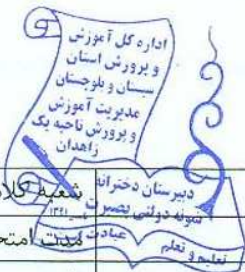 اداره کل آموزش
و پرورش استان
سیستان و بلوچستان
مدیریت آموزش
و پرورش ناحیه یک
زاهدان
دبیرستان دخترانه
نمونه دولتی بصیرت
شعبه کلاس
مدت امتح
عبادت
تعلیم و تعلم